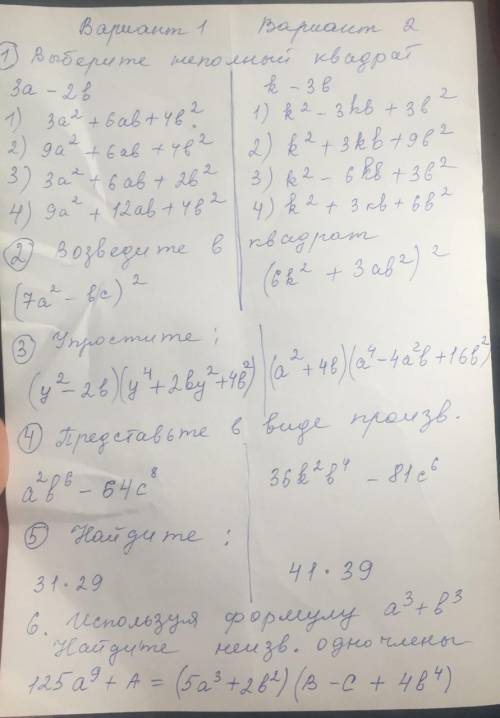 Вариант 1 Вариант 2
① Выберите неполный квадрат
3a - 2b k - 3b
1) 3a² + 6ab + 4b² 1) k² - 3kb + 3b²
2) 9a² + 6ab + 4b² 2) k² + 3kb + 9b²
3) 3a² + 6ab + 2b² 3) k² - 6kb + 3b²
4) 9a² + 12ab + 4b² 4) k² + 3kb + 6b²
② Возведите в квадрат
(7a² - bc)² (6k² + 3ab²)²
③ Упростите:
(y² - 2b)(y⁴ + 2by² + 4b²) (a² + 4b)(a⁴ - 4a²b + 16b²)
④ Представьте в виде произв.
a²b⁶ - 64c⁸ 36k²b⁴ - 81c⁶
⑤ Найдите:
31 · 29 41 · 39
6. Используя формулу a³ + b³
Найдите неизв. одночлены
125a⁹ + A = (5a³ + 2b²)(B - C + 4b⁴)